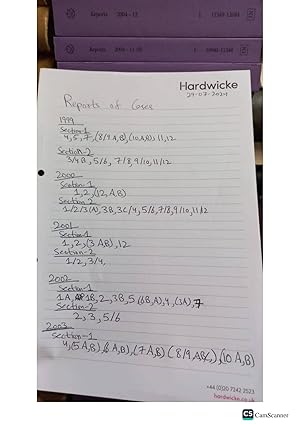 Reports 2004 - 12
Reports 2004 - 11
Hardwicke
Reports of Cases
1999
Section-1
4, 5, 7, (8/9 A,B), (10 A,B), 11, 12
Section-2
3/4 B, 5/6, 7/8, 9/10, 11/12
2000
Section-1
1, 2, (12, A,B)
Section 2
1/2/3(A), 3B, 3C/4, 5/6, 7/8, 9/10, 11/12
2001
Section 1
1, 2, (3 A,B), 12
Section-2
1/2, 3/4,
2002
Section-1
1A, 1B, 2, 3B, 5 (6B, A), 4, (3A), 7
Section-2
2, 3, 5/6
2003
Section-1
4, (5 A,B) (6 A,B), (7 A,B) (8/9 A,B,C), (10 A,B)
+44 (0)20 7242 2523
hardwicke.co.uk
CS CamScanner